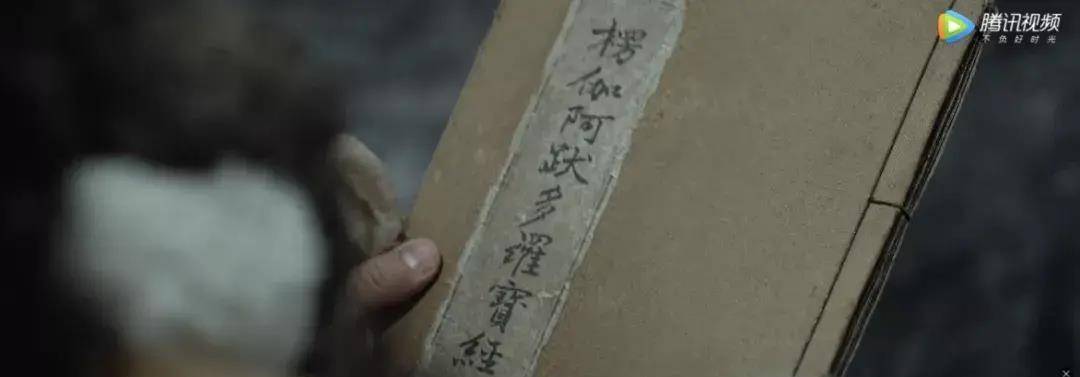 楞伽阿跋多羅寶經
腾讯视频
不负好时光